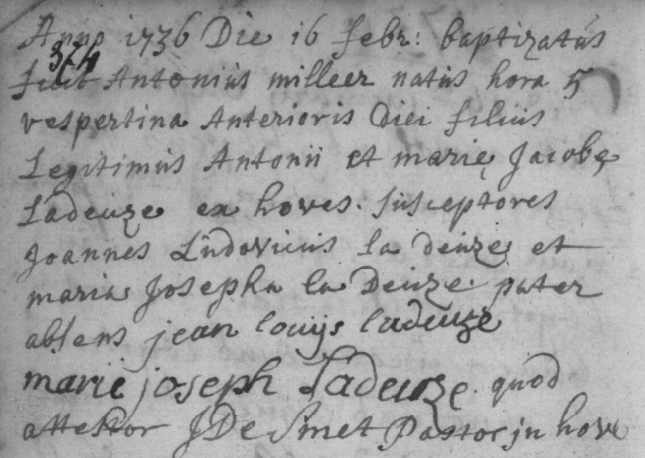 Anno 1736 Die 16 febr: baptizatus
fuit Antonius milleer natus hora 5
vespertina Anterioris Diei filius
Legitimus Antonii et marię Jacobę
Ladeuze ex hoves. susceptores
Joannes Ludovicus la deuze et
maria Josepha la Deuze. pater
absens jean louijs ladeuze
marie joseph Ladeuze. quod
attestor JDe Smet Pastor in hove